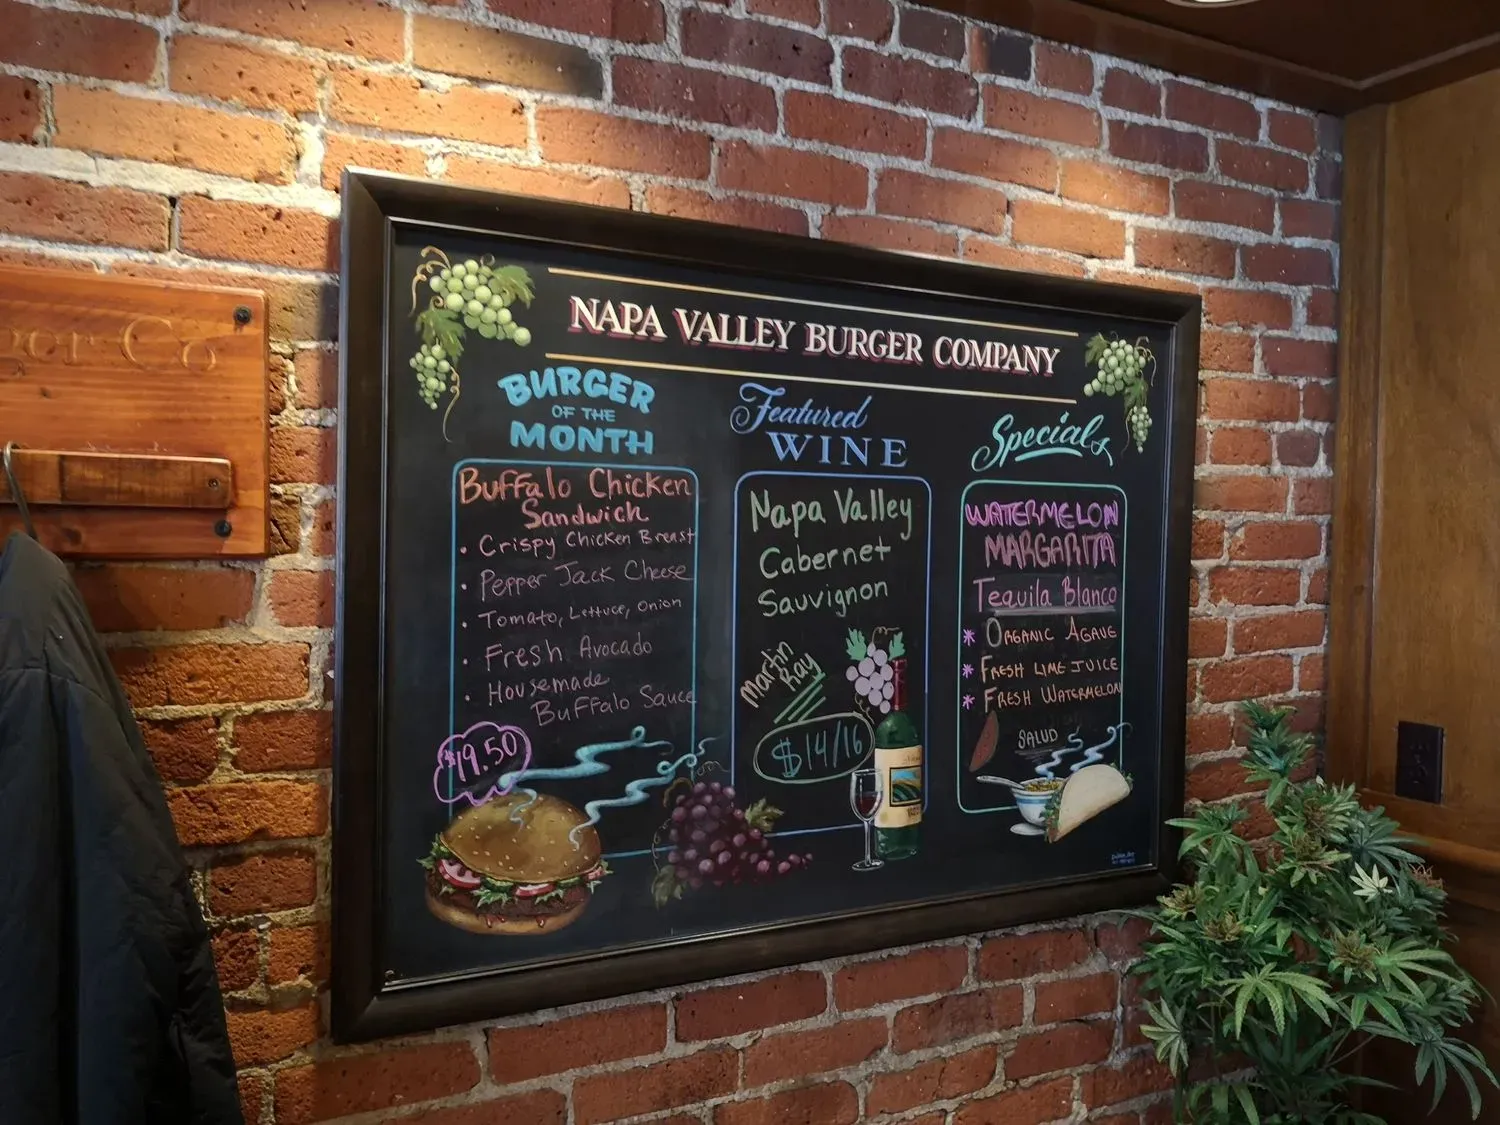 NAPA VALLEY BURGER COMPANY
BURGER
OF THE
MONTH
Buffalo Chicken
Sandwich
• Crispy Chicken Breast
• Pepper Jack Cheese
• Tomato, Lettuce, Onion
• Fresh Avocado
• Housemade
Buffalo Sauce
$19.50
Featured
WINE
Napa Valley
Cabernet
Sauvignon
Martin
Ray
$14/16
Specials
WATERMELON
MARGARITA
Tequila Blanco
* ORGANIC AGAVE
* FRESH LIME JUICE
* FRESH WATERMELON
SALUD
Co